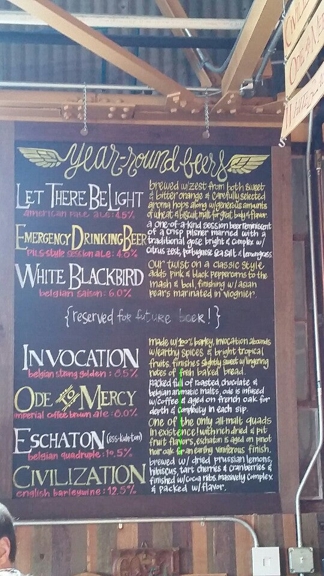 year-round beers
LET THERE BE LIGHT
american pale ale: 4.5%
brewed w/zest from both sweet
& bitter orange & carefully selected
strong hops along w/generous amounts
of wheat & biscuit malt for great body & flavor.
EMERGENCY DRINKING BEER
pils-style session ale: 4.0%
a one-of-a-kind session beer reminiscent
of a crisp pilsner married with a
traditional gose. bright & complex w/
citrus zest, portuguese sea salt & lemongrass
WHITE BLACKBIRD
belgian saison: 6.0%
Our twist on a classic style
adds pink & black peppercorns to the
mash & boil, finishing w/asian
pears marinated in viognier.
{reserved for future beer!}
INVOCATION
belgian strong golden: 8.5%
made w/100% barley, invocation abounds
w/earthy spices & bright tropical
fruits. finishes slightly sweet w/lingering
notes of fresh baked bread.
ODE TO MERCY
imperial coffee brown ale: 8.0%
packed full of roasted chocolate &
belgian aromatic malts, ode is infused
w/coffee & aged on french oak for
depth & complexity in each sip.
ESCHATON (ess-kuh-ton)
belgian quadruple: 10.5%
One of the only all-malt quads
in existence! with rich dried & pit
fruit flavors, eschaton is aged on pinot
noir oak for an earthy viniferous finish.
CIVILIZATION
english barleywine: 12.5%
brewed w/ dried prussian lemons,
hibiscus, tart cherries & cranberries &
finished w/cocoa nibs. massively complex
& packed w/flavor.